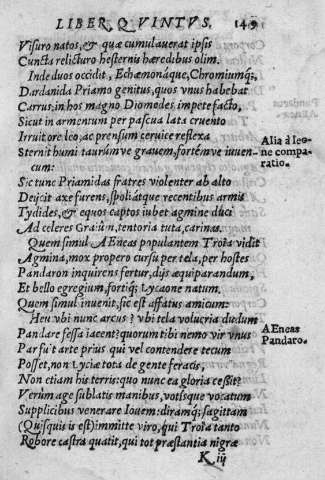 LIBER QVINTVS. 149
Visuro natos, & quæ cumulauerat ipsis
Cuncta relicturo hesternis hæredibus olim.
Inde duos occidit, Echæmonáque, Chromiumq;,
Dardanida Priamo genitus, quos vnus habebat
Carrus: in hos magno Diomodes, impete facto,
Sicut in armentum per pascua lata cruento
Irruit ore leo, ac prensum ceruice reflexa
Sternit humi taurúmve grauem, fortémve iuuen-
cum:
Alia à leo-
ne compa-
ratio.
Sic tunc Priamidas fratres violenter ab alto
Deijcit axe furens, spoliátque recentibus armis
Tydides, & equos captos iubet agmine duci
Ad celeres Graiûm, tentoria tuta, carinas.
Quem simul AEneas populantem Troïa vidit
Agmina, mox propero cursu per tela, per hostes
Pandaron inquirens fertur, dijs æquiparandum,
Et bello egregium, fortíq; Lycaone natum.
Quem simul inuenit, sic est affatus amicum:
Heu vbi nunc arcus? vbi tela volucria dudum
Pandare fessa iacent? quorum tibi nemo vir vnus
AEneas
Pandaro.
Par fuit arte prius qui vel contendere tecum
Posset, non Lycia tota de gente feracis,
Non etiam his terris: quo nunc ea gloria cessit?
Verùm age sublatis manibus, votísque vocatum
Supplicibus venerare Iouem: dirámq; sagittam
(Quisquis is est) immitte viro, qui Troïa tanto
Robore castra quatit, qui tot præstantia nigræ
K iij